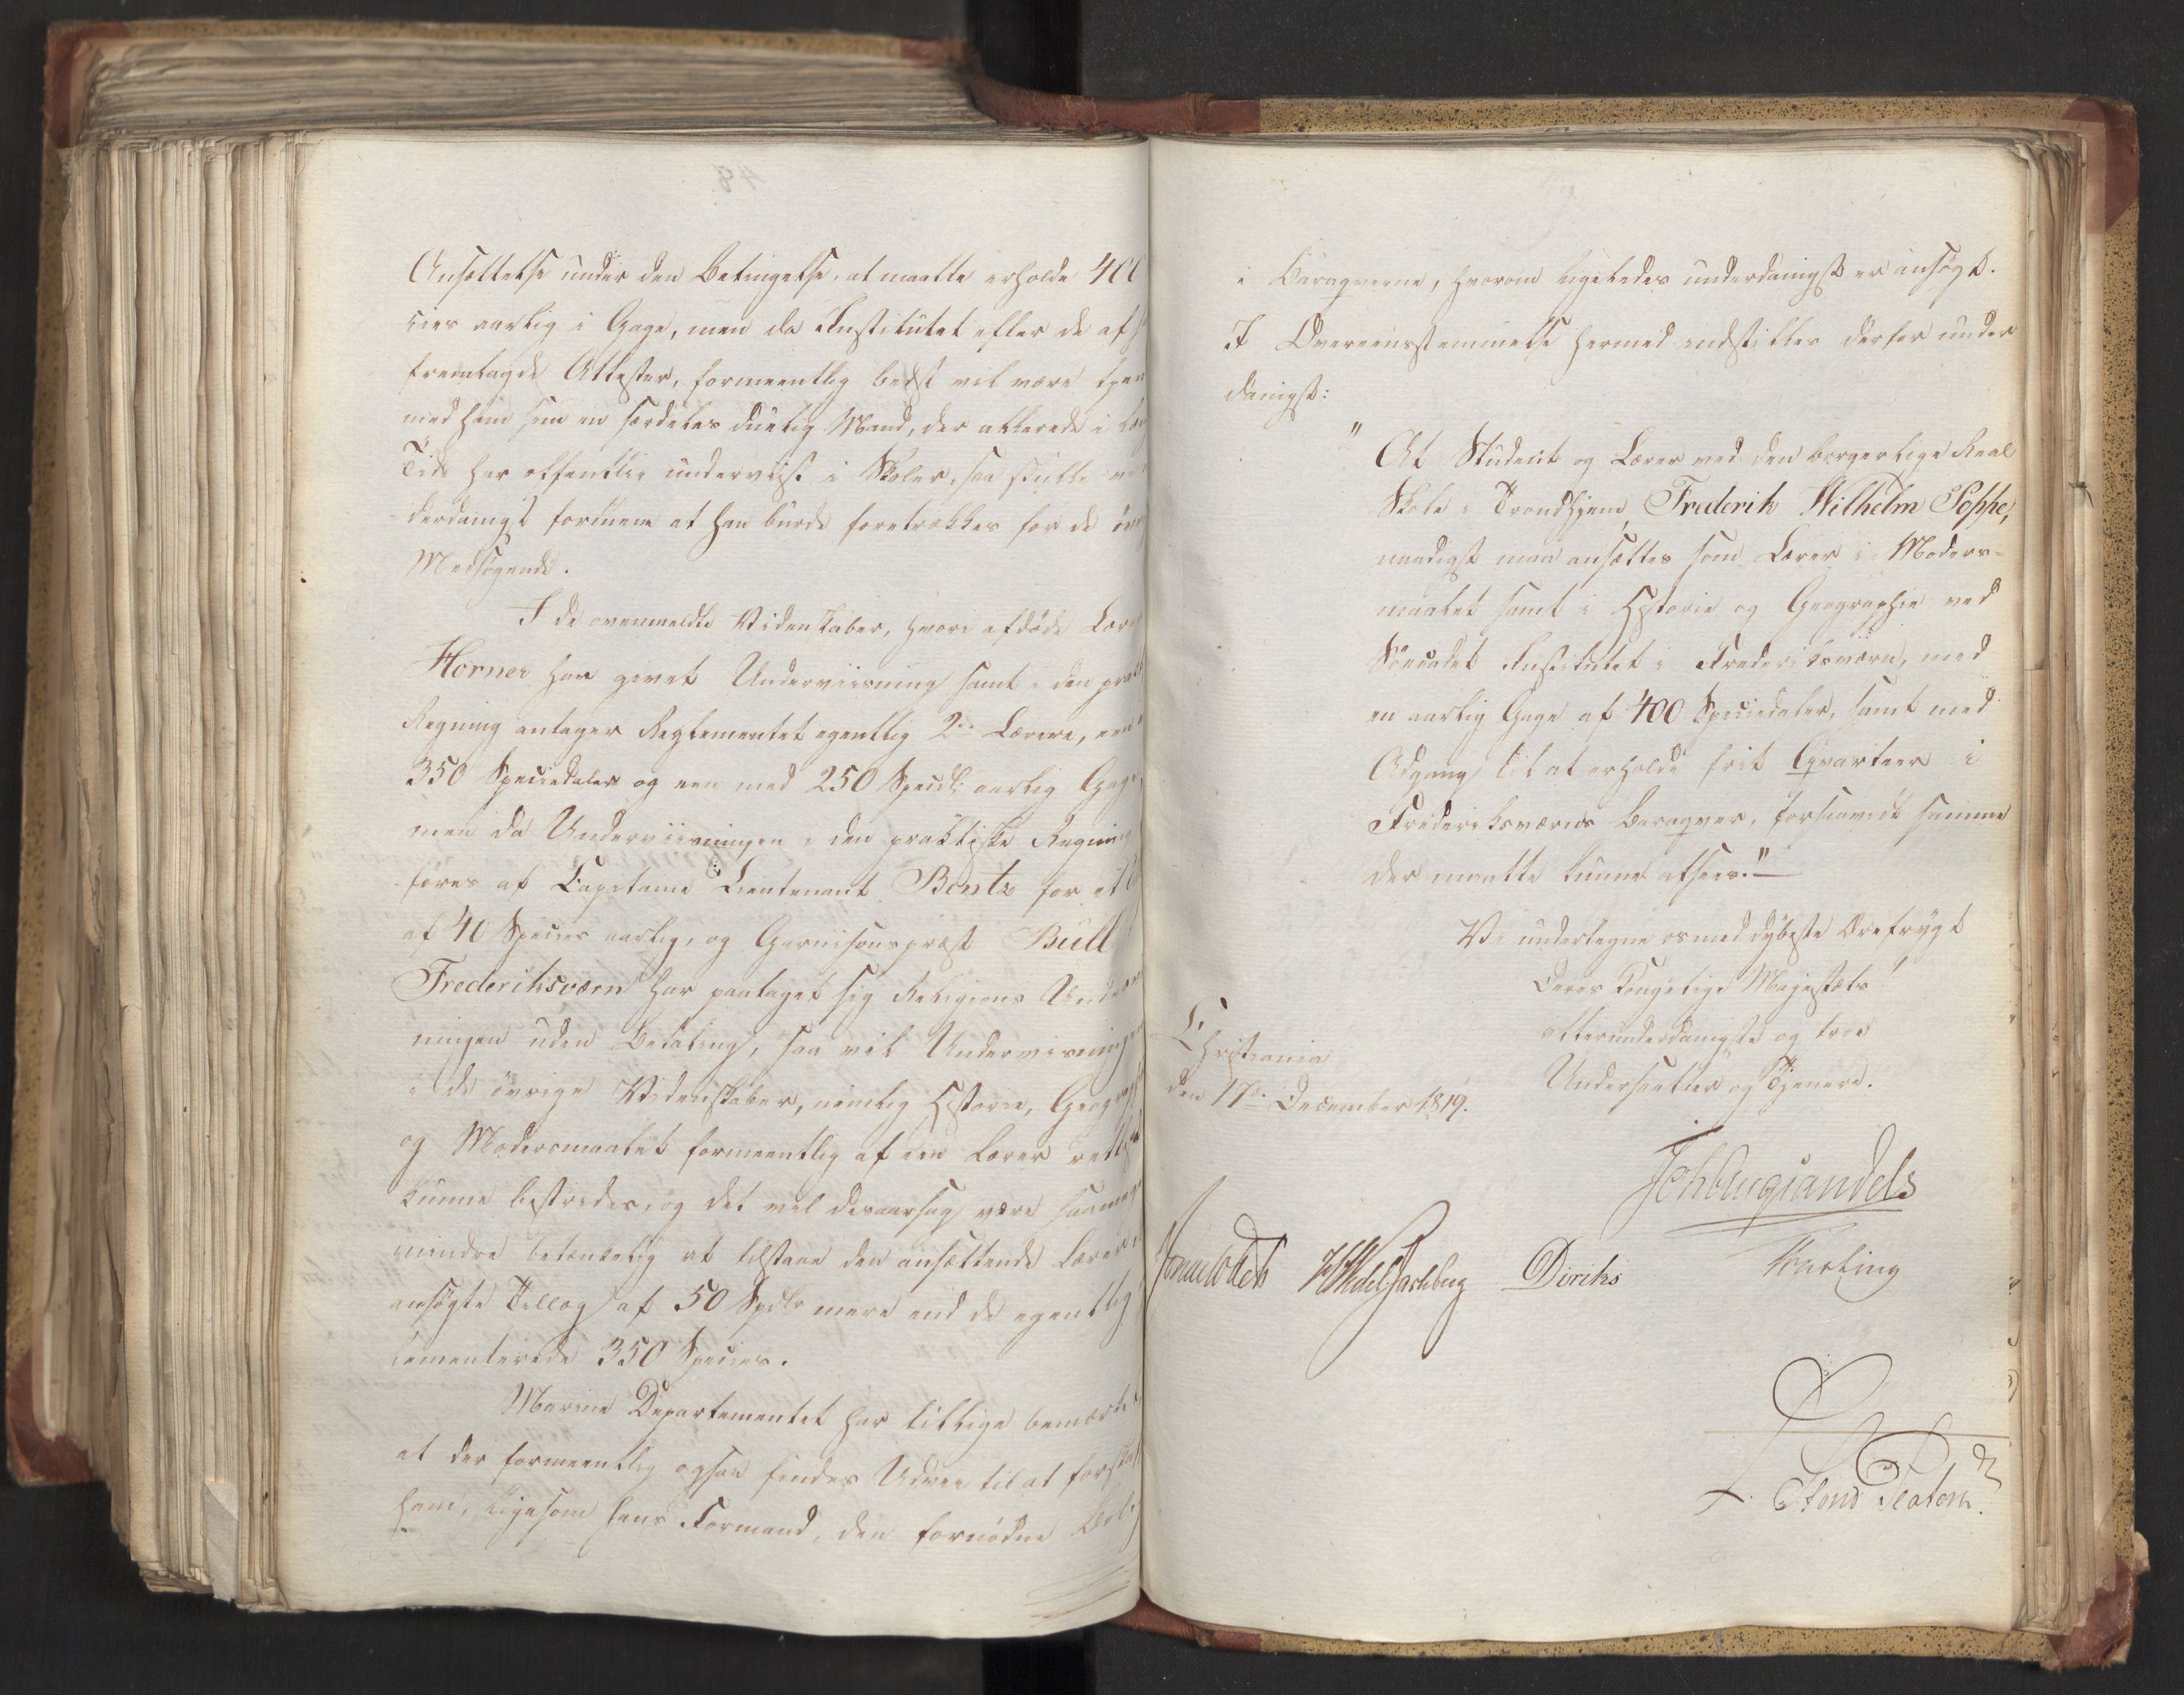 Ansættelse under den Betingelse, at maatte erholde 400
cies aarlig i Gage, men da Institutet efter de af
fremlagde Attester, formeentlig bedst vil være tjen
med ham som en særdeles duelig Mand, der allerede i
Tid har offentlig underviist i Skoler, saa skulle vi
derdanigst formene at han burde foretrækkes for de öv
Medsøgende.
I de ovenmeldte Videnskaber, hvori afdøde Lær
Horner har givet Underviisning samt i den prakt
Regning antager Reglementet egentlig 2de Lærere, een
350 Speciedaler og een med 250 Specdl: aarlig Gage
men da Underviisningen i den praktiske Regning
føres af Capitaine Lieutenant Bentz for et
af 40 Species aarlig, og Garnisonspræst Bull
Frederiksværn har paataget sig Religions Under
ningen uden Betaling, saa vil Underviisningen
i de øvrige Videnskaber, nemlig Historie, Geograph
og Modersmaalet formeentlig af een Lærer
kunne bestrides, og det vil desaarsag være saameget
mindre betænkelig at tilstaae den ansættende Lærer
ansøgte Tillæg af 50 Spdlr mere end de egentlig
lementerede 350 Species.
Marine Departementet har tillige bemærket,
at der formeentlig ogsaa findes Udvei til at forskaf
ham, ligesom hans Formand, den fornødne
i Baraqverne, hvorom ligeledes underdanigst er ansøgt.
I Overeensstemmelse hermed indstilles derfor under
danigst:
" At Student og Lærer ved den borgerlige Real
Skole i Trondhjem, Frederik Wilhelm Poppe,
naadigst maa ansættes som Lærer i Moders-
maalet samt i Historie og Geographie ved
Søecadet Institutet i Frederiksværn, med
en aarlig Gage af 400 Speciedaler, samt med
Adgang til at erholde frit Qvarteer i
Frederiksværns Baraqver, forsaavidt samme
der maatte kunne afsees."
Vi undertegne os med dybeste Ærefrygt
Deres Kongelige Majestæts
allerunderdanigste og troe
Undersaatter og Tjenere.
Christiania
den 17de December 1819.
Joh Aug Sandels
Sommerfeldt HWedel Jarlsberg Diriks Fasting